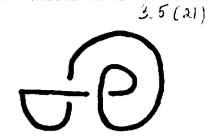 3.5 (21)